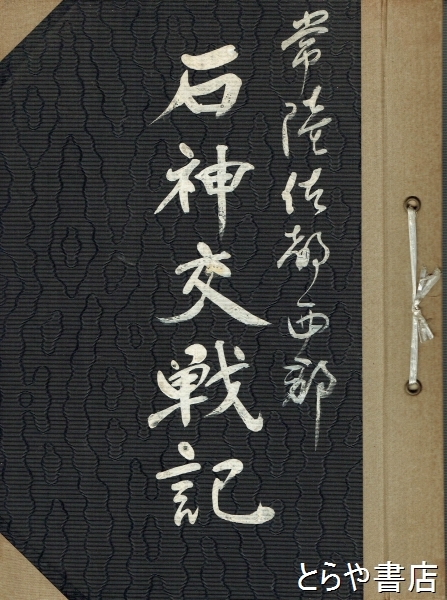 常陸佐都西部
石神交戦記
とらや書店